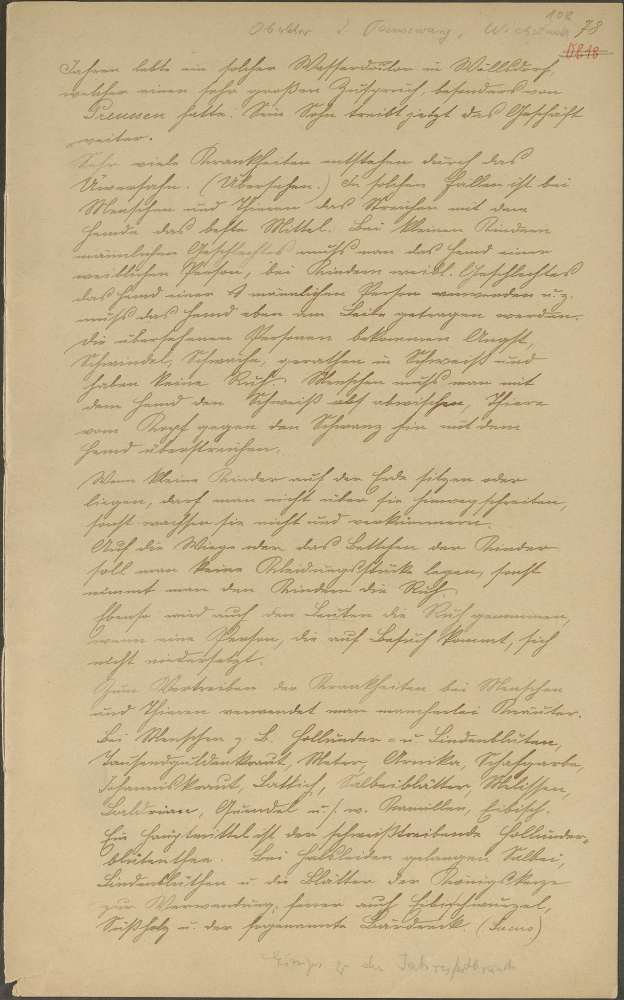 108
78
Jahren lebte ein solcher Wasserdoktor in Wüllsdorf,
welcher einen sehr großen Zuspruch, besonders von
Preussen hatte. Sein Sohn treibt jetzt das Geschäft
weiter.
Sehr viele Krankheiten entstehen durch das
(Übersehen.) In solchen Fällen ist bei
Menschen und Thieren das Streichen mit dem
Hemde das beste Mittel. Bei kleinen Kindern
männlichen Geschlechtes muß man das Hemd einer
weiblichen Person, bei Kindern weibl. Geschlechtes
das Hemd einer männlichen Person verwenden u. z.
muß das Hemd eben am Leibe getragen werden.
Die übersehenen Personen bekommen Angst,
Schwindel, Schwäche, gerathen in Schweiß und
haben keine Ruh. Menschen muß man mit
dem Hemd den Schweiß abwischen, Thiere
vom Kopf gegen den Schwanz hin mit dem
Hemd überstreichen.
Wenn kleine Kinder auf der Erde sitzen oder
liegen, darf man nicht über sie hinwegschreiten,
sonst wachsen sie nicht und verkümmern.
Auf die Wiege oder das Bettchen der Kinder
soll man keine Kleidungsstücke legen, sonst
nimmt man den Kindern die Ruh.
Ebenso wird auch den Leuten die Ruh genommen,
wenn eine Person, die auf Besuch kommt, sich
nicht niedersetzt.
Zum Vertreiben der Krankheiten bei Menschen
und Thieren verwendet man mancherlei Kräuter.
Bei Menschen z. B. Hollunder- u. Lindenblüten,
Tausendguldenkraut, Arnika, Schafgarbe,
Johanniskraut, Lattich, Salbeiblätter, Melissen,
Baldrian, Gundel u. s. w. Kamillen, Eibisch.
Ein Hauptmittel ist der schweißtreibende Hollunder-
blütenthee. Bei Halsleiden gelangen Salbei,
Lindenblüthen u. die Blätter der Königskerze
zur Verwendung, ferner auch Eibischwurzel,
Süßholz u. der sogenannte Bärdreck. (Succus)